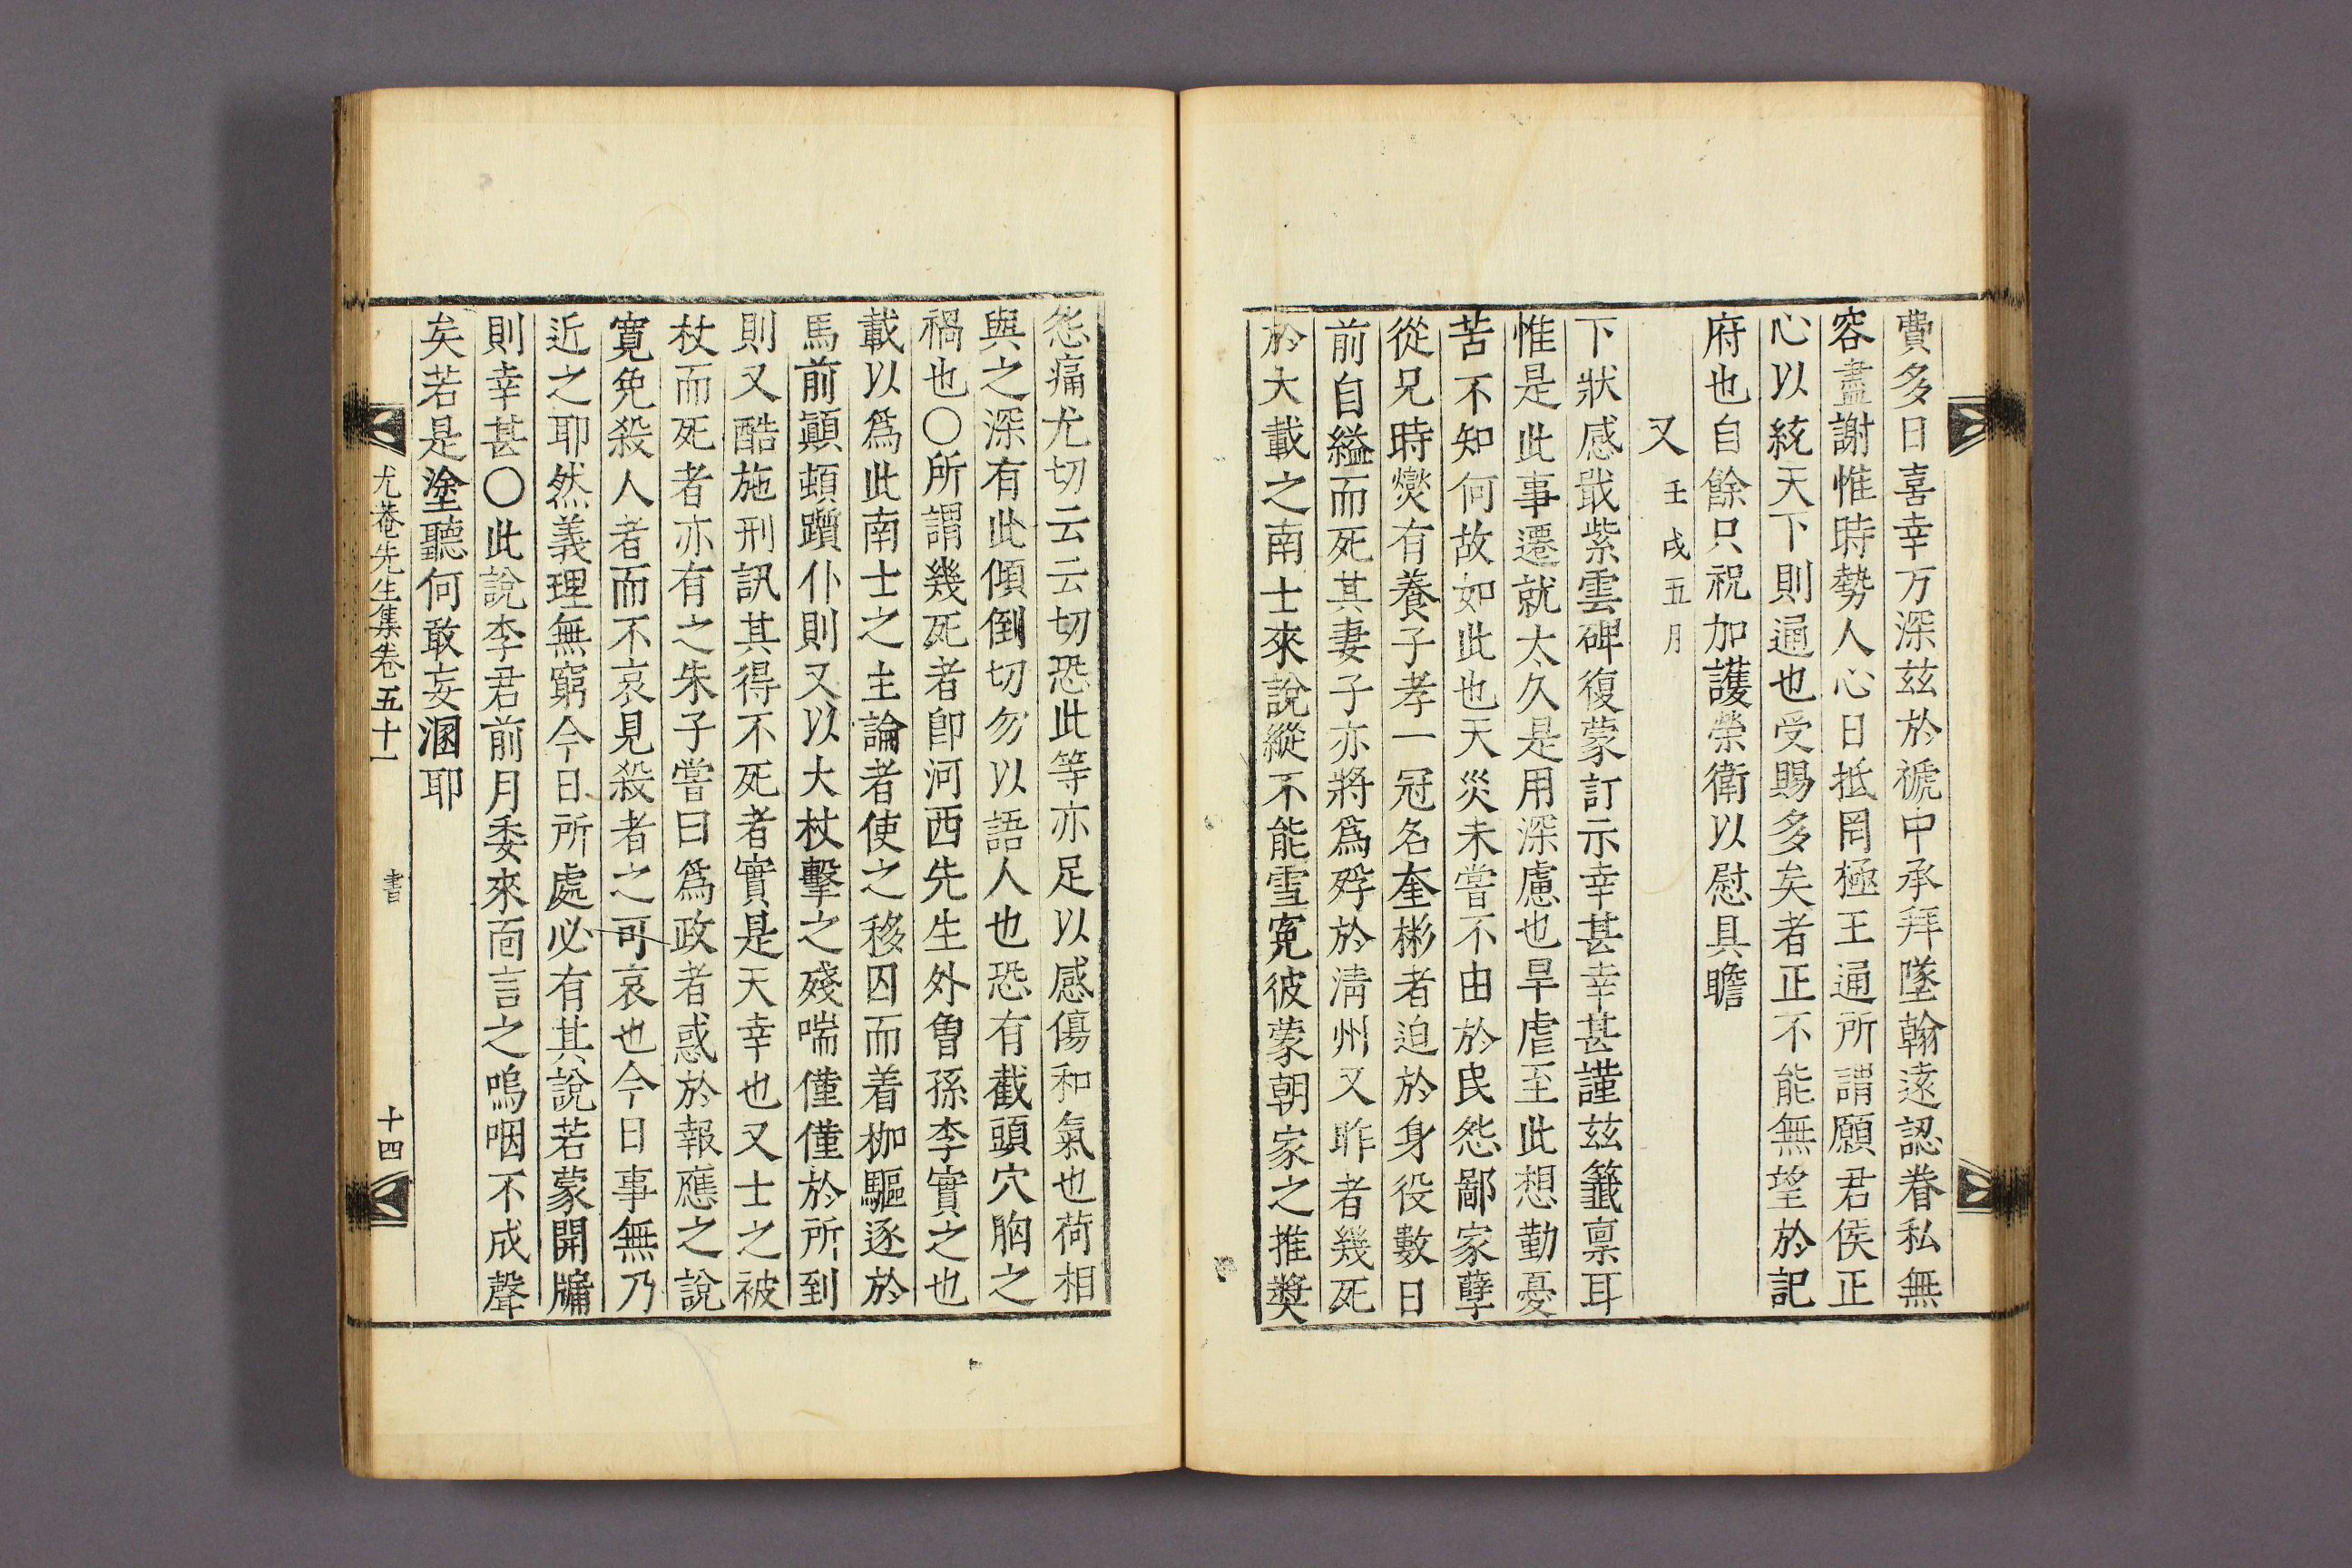 費多日喜幸万深玆於褫中承拜墜翰遠認眷私無
容盡謝惟時勢人心日抵罔極王通所謂願君侯正
心以統天下則通也受賜多矣者正不能無望於記
府也自餘只祝加護榮衛以慰具瞻
又 壬戌五月
下狀感戢紫雲碑復蒙訂示幸甚幸甚謹玆籤禀耳
惟是此事遷就太久是用深慮也旱虐至此想勤憂
苦不知何故如此也天災未嘗不由於民怨鄙家孽
從兄時爕有養子孝一冠名奎彬者迫於身役數日
前自縊而死其妻子亦將爲殍於淸州又昨者幾死
於大載之南士來說縱不能雪冤彼蒙朝家之推奬
怨痛尤切云云切恐此等亦足以感傷和氣也荷相
與之深有此傾倒切勿以語人也恐有截頭穴胸之
禍也〇所謂幾死者卽河西先生外曾孫李實之也
載以爲此南士之主論者使之移囚而着枷驅逐於
馬前顚頓躓仆則又以大杖擊之殘喘僅僅於所到
則又酷施刑訊其得不死者實是天幸也又士之被
杖而死者亦有之朱子嘗曰爲政者惑於報應之說
寬免殺人者而不哀見殺者之可哀也今日事無乃
近之耶然義理無窮今日所處必有其說若蒙開牖
則幸甚〇此說李君前月委來面言之嗚咽不成聲
矣若是塗聽何敢妄溷耶
尤菴先生集卷五十一 書 十四